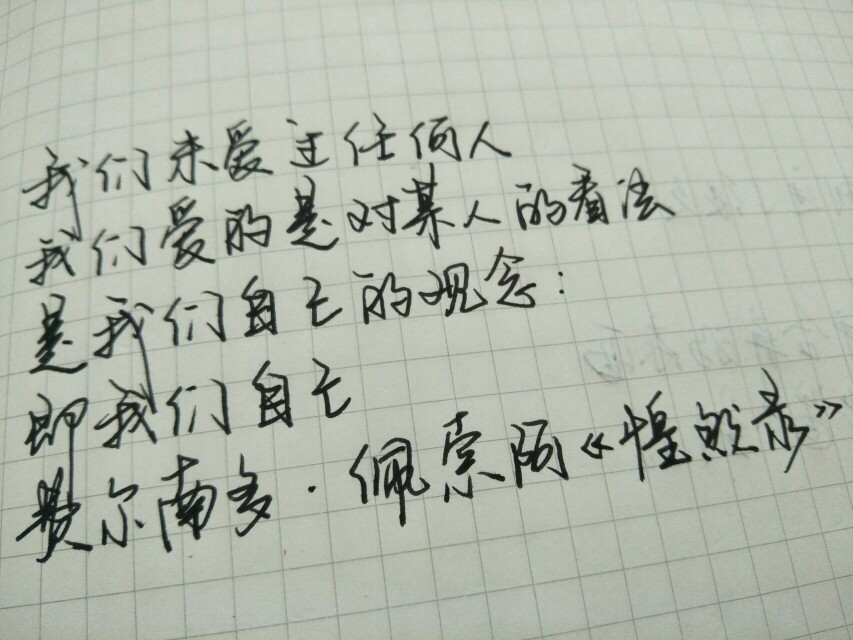 我们未爱过任何人
我们爱的是对某人的看法
是我们自己的观念：
即我们自己
费尔南多·佩索阿《惶然录》